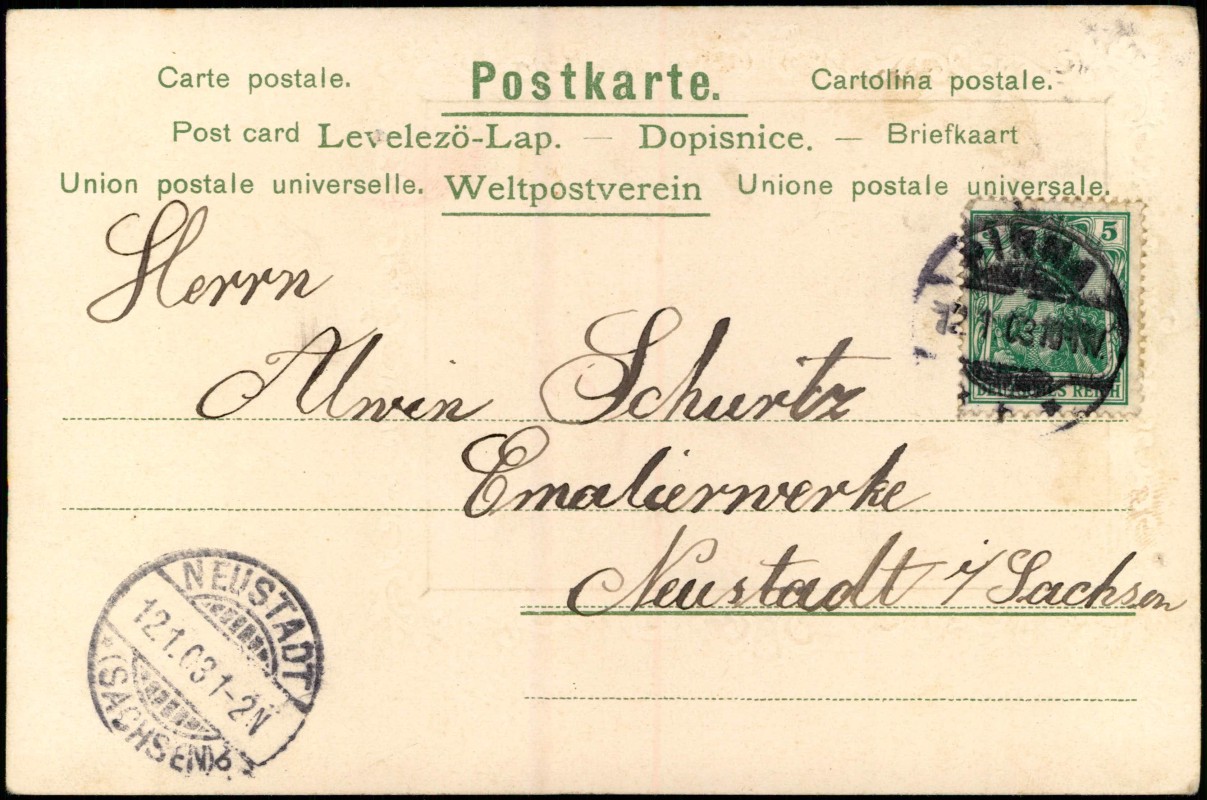 Carte postale. Postkarte. Cartolina postale.
Post card Levelezö-Lap. — Dopisnice. — Briefkaart
Union postale universelle. Weltpostverein Unione postale universale.
5
PIRNA
12.1.03
DEUTSCHES REICH
Herrn
Alwin Schurtz
Emalierwerke
Neustadt i/Sachsen
NEUSTADT
12.1.03 1-2N
(SACHSEN)